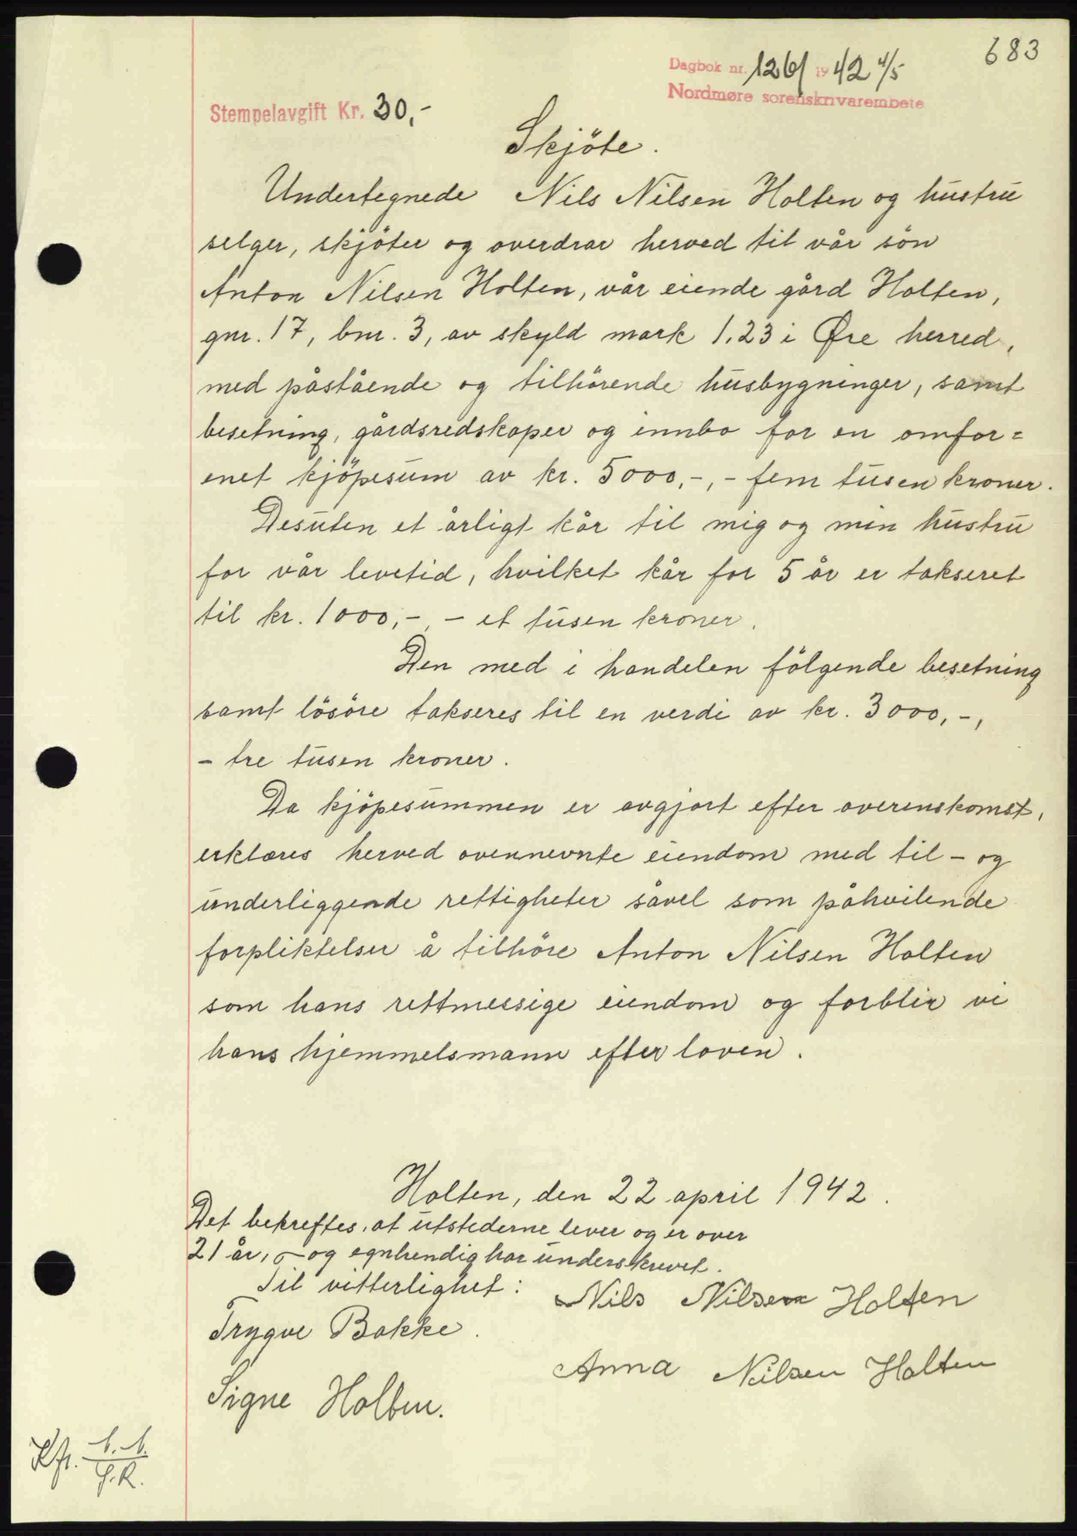 683
Dagbok nr. 1261 1942 4/5
Nordmøre sorenskrivarembete
Stempelavgift Kr. 30,-
Skjöte.
Undertegnede Nils Nilsen Holten og hustru
selger, skjöter og overdrar herved til vår sön
Anton Nilsen Holten, vår eiende gård Holten,
gnr. 17, bnr. 3, av skyld mark 1.23 i Øre herred,
med påstående og tilhörende husbygninger, samt
besetning, gårdsredskaper og innbo for en omfor=
enet kjöpesum av kr. 5000,-,- fem tusen kroner.
Desuten et årligt kår til mig og min hustru
for vår levetid, hvilket kår for 5 år er takseret
til kr. 1000,-, - et tusen kroner.
Den med i handelen fölgende besetning
samt lösöre takseres til en verdi av kr. 3000,-,
- tre tusen kroner.
Da kjöpesummen er avgjort efter overenskomst,
erklæres herved ovennevnte eiendom med til- og
underliggende rettigheter såvel som påhvilende
forpliktelser å tilhöre Anton Nilsen Holten
som hans rettmessige eiendom og forblir vi
hans hjemmelsmann efter loven.
Holten, den 22 april 1942.
Det bekreftes, at utstederne lever og er over
21 år, og egnhendig har underskrevet.
Til vitterlighet:
Nils Nilsen Holten
Trygve Bakke.
Anna Nilsen Holten
Signe Holten.
Kfr.